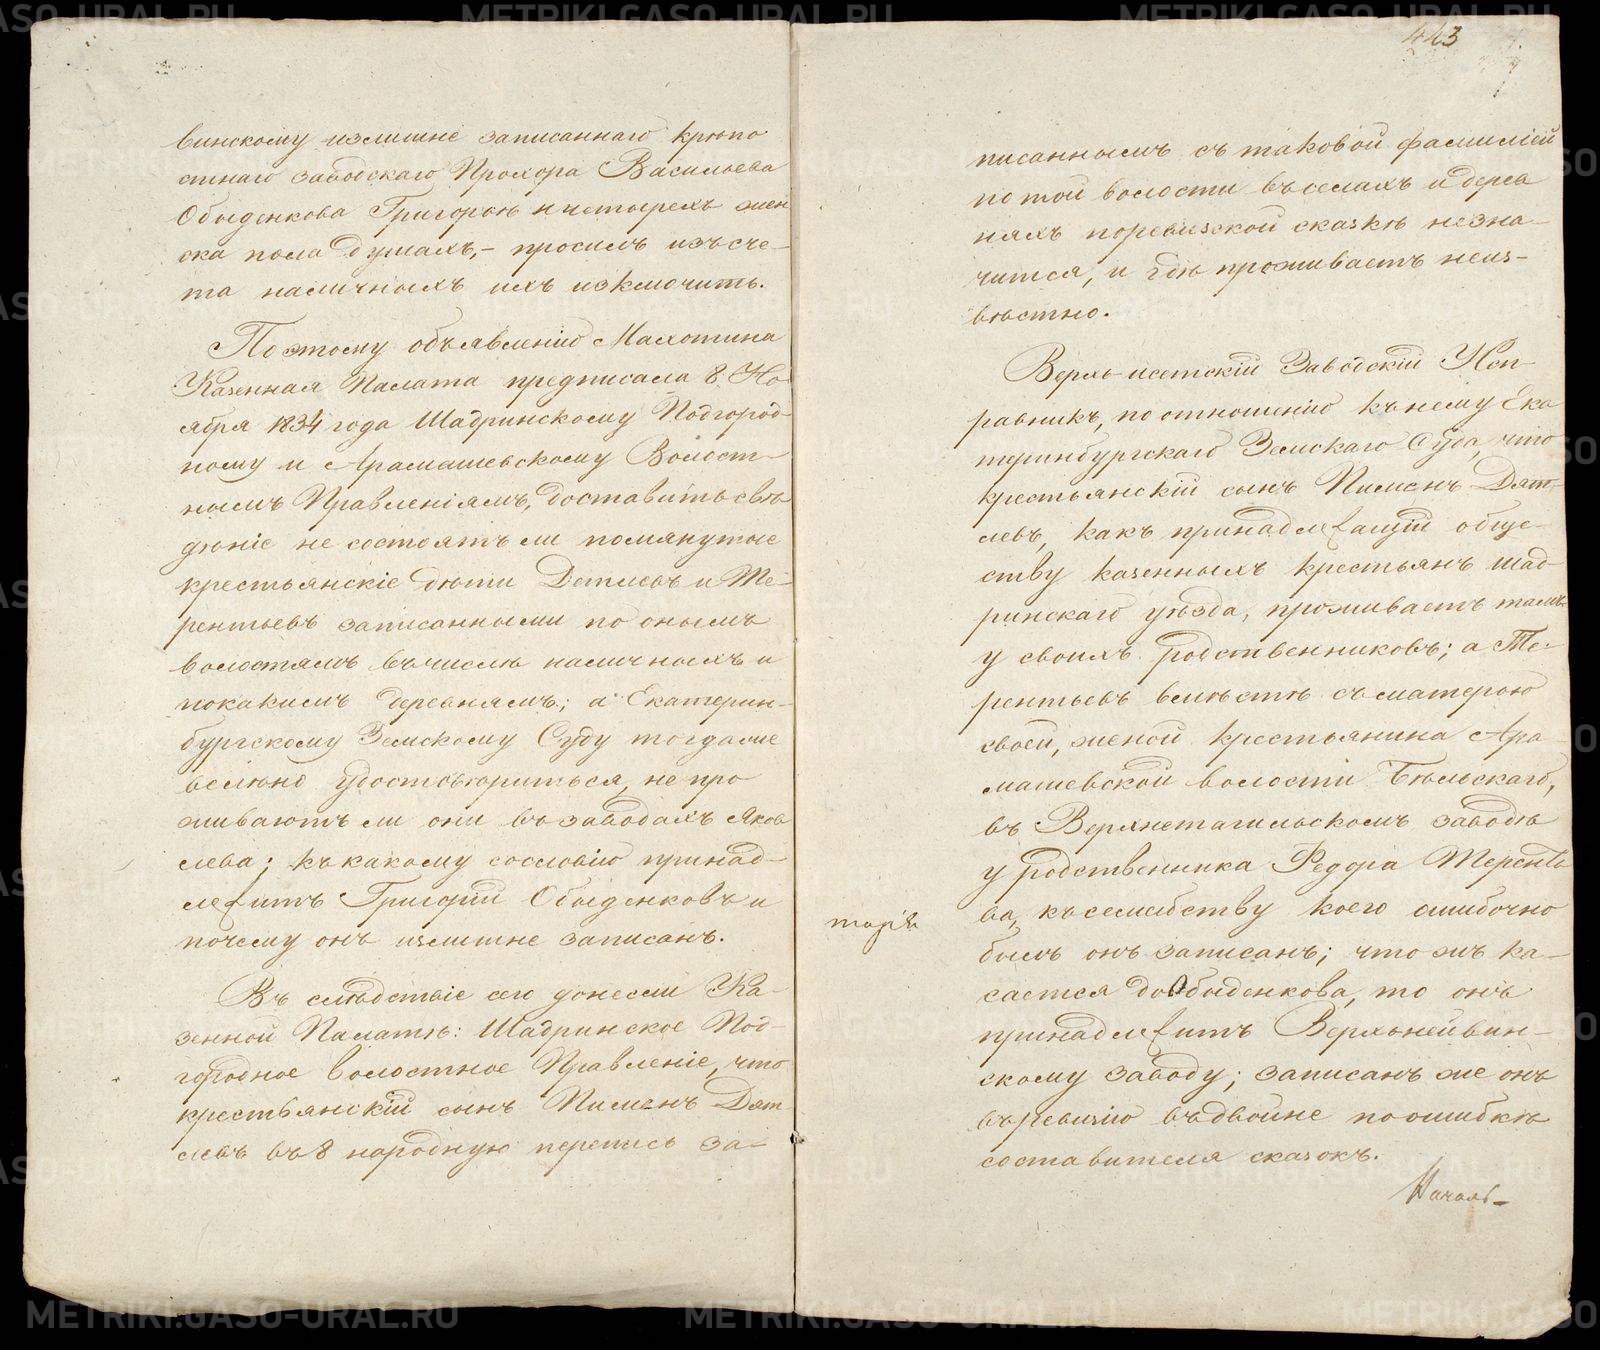 METRIKI.GASO-URAL.RU
443
винскому излишне записаннаго крѣпо
стнаго заводскаго Прохора Васильева
Обыденкова Григорью и четырехъ жен
ска пола душахъ,- просилъ изъ сче-
та наличныхъ ихъ исключить.
По этому объявленію Махотина
Казенная Палата предписала 8 Но
ября 1834 года Шадринскому Подгород-
ному и Арамашевскому Волост-
нымъ Правленіямъ, доставить свѣ
дѣніе не состоятъ ли помянутые
крестьянскіе дѣти Дятлевъ и Те-
рентьевъ записанными по онымъ
волостямъ въ числѣ наличныхъ и
по какимъ деревнямъ; а Екатерин-
бургскому Земскому Суду тогда же
велѣно удостовѣриться, не про
живаютъ ли они въ заводахъ Яков
лева; къ какому сословію принад-
лежитъ Григорій Обыденковъ и
почему онъ излишне записанъ.
Въ слѣдствіе сего донесли Ка-
зенной Палатѣ: Шадринское Под-
городное волостное Правленіе, что
крестьянскій сынъ Пименъ Дят-
левъ въ 8 народную перепись за-
писаннымъ съ таковой фамиліей
по той волости въ селахъ и дерев
няхъ по ревизской сказкѣ не зна-
чится, и гдѣ проживаетъ неиз-
вѣстно.
Верхъ-исетскій Заводскій Исп-
равникъ, по отношенію къ нему Ека
теринбургскаго Земскаго Суда, что
крестьянскій сынъ Пименъ Дят-
левъ, какъ принадлежащій обще-
ству казенныхъ крестьянъ Шад-
ринскаго уѣзда, проживаетъ тамъ
у своихъ родственниковъ; а Те-
рентьевъ вмѣстѣ съ матерью
своей, женой крестьянина Ара-
машевской волости Бѣльскаго,
въ Верхнетагильскомъ заводѣ
у родственника Федора Терентье
ва, къ семейству коего ошибочно
былъ онъ записанъ; что жъ ка-
сается до Обыденкова, то онъ
принадлежитъ Верхнейвин-
скому заводу; записанъ же онъ
въ ревизію въ двойне по ошибкѣ
составителя сказокъ.
Началь-